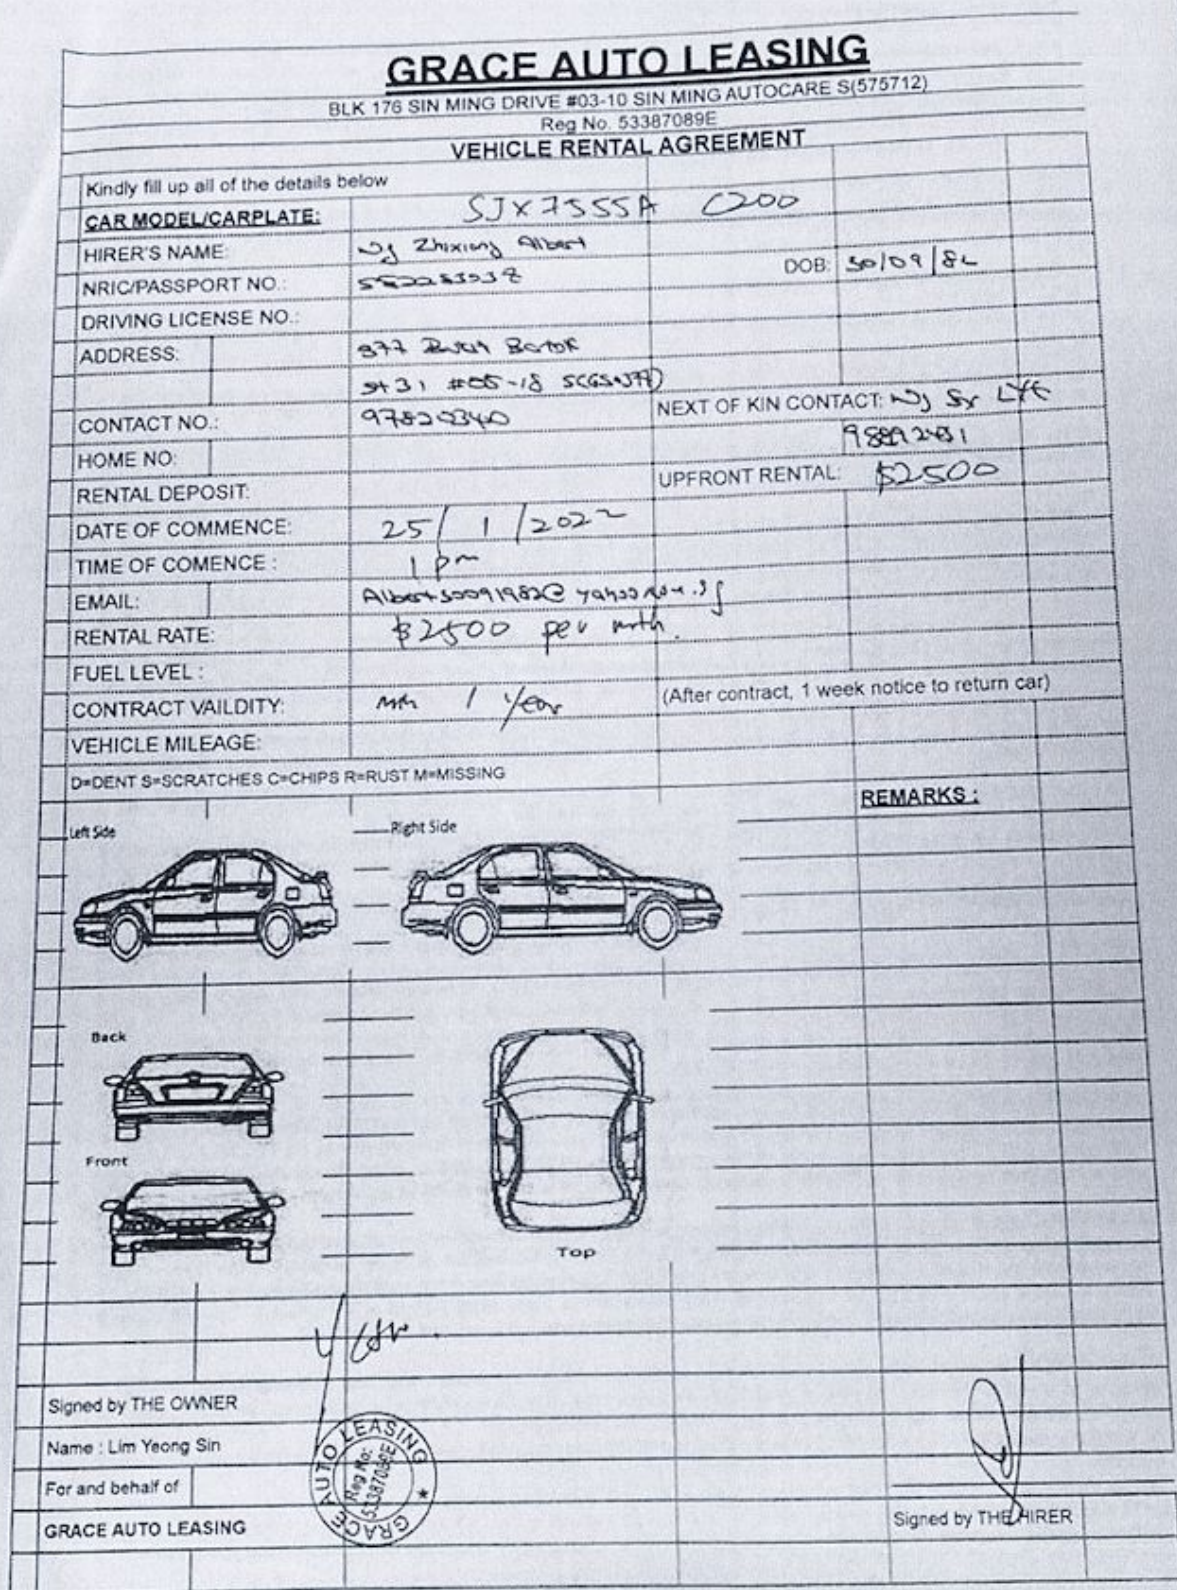 GRACE AUTO LEASING
BLK 176 SIN MING DRIVE #03-10 SIN MING AUTOCARE S(575712)
Reg No. 53387089E
VEHICLE RENTAL AGREEMENT
Kindly fill up all of the details below
CAR MODEL/CARPLATE: SJX7555A C200
HIRER'S NAME: Ng Zhixiong Albert
NRIC/PASSPORT NO.: DOB: 30/09/82
DRIVING LICENSE NO.:
ADDRESS: 377 Bukit Batok
St 31 #05-18
CONTACT NO.: 97820340 NEXT OF KIN CONTACT: Ng
HOME NO:
RENTAL DEPOSIT: UPFRONT RENTAL: $2500
DATE OF COMMENCE: 25/1/2022
TIME OF COMENCE : 1pm
EMAIL: Albert30091982@yahoo.com.sg
RENTAL RATE: $2500 per mth.
FUEL LEVEL :
CONTRACT VAILDITY: 1 Year (After contract, 1 week notice to return car)
VEHICLE MILEAGE:
D=DENT S=SCRATCHES C=CHIPS R=RUST M=MISSING
REMARKS :
Left Side
Right Side
Back
Front
Top
Signed by THE OWNER
Name : Lim Yeong Sin
For and behalf of
GRACE AUTO LEASING
GRACE AUTO LEASING
Reg No:
53387089E
Signed by THE HIRER